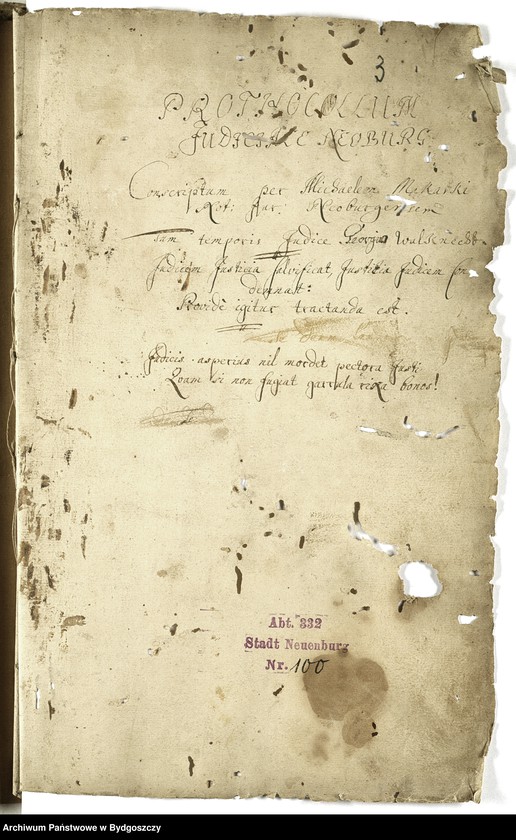 3
PROTHOCOLLUM
JUDICIALE NEOBURG:
Conscriptum per Michaelem
Not: Jur: Neoburgensem
tum temporis Judice Georgio
Judicem Justitia salvificat, Justitia Judicem con
demnat:
Provide igitur tractanda est.
Judicis asperius nil mordet pectora Justi
Quam si non fugiat garrula rixa bonos!
Abt. 332
Stadt Neuenburg
Nr. 100
Archiwum Państwowe w Bydgoszczy